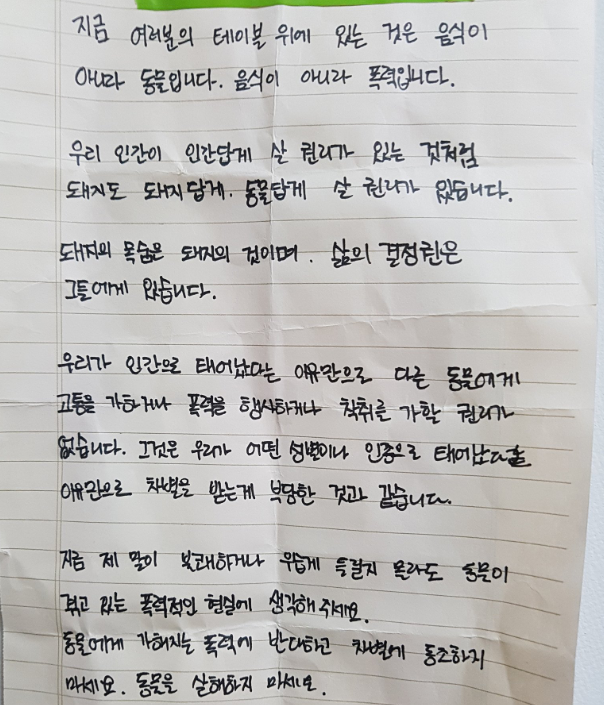 지금 여러분의 테이블 위에 있는 것은 음식이
아니라 동물입니다. 음식이 아니라 폭력입니다.
우리 인간이 인간답게 살 권리가 있는 것처럼
돼지도 돼지답게. 동물답게 살 권리가 있습니다.
돼지의 목숨은 돼지의 것이며. 삶의 결정권은
그들에게 있습니다.
우리가 인간으로 태어났다는 이유만으로 다른 동물에게
고통을 가하거나 폭력을 행사하거나 착취를 가할 권리가
없습니다. 그것은 우리가 어떤 성별이나 인종으로 태어났다는
이유만으로 차별을 받는게 부당한 것과 같습니다.
지금 제 말이 불쾌하거나 우습게 들릴지 몰라도 동물이
겪고 있는 폭력적인 현실에 생각해주세요.
동물에게 가해지는 폭력에 반대하고 차별에 동조하지
마세요. 동물을 살해하지 마세요.